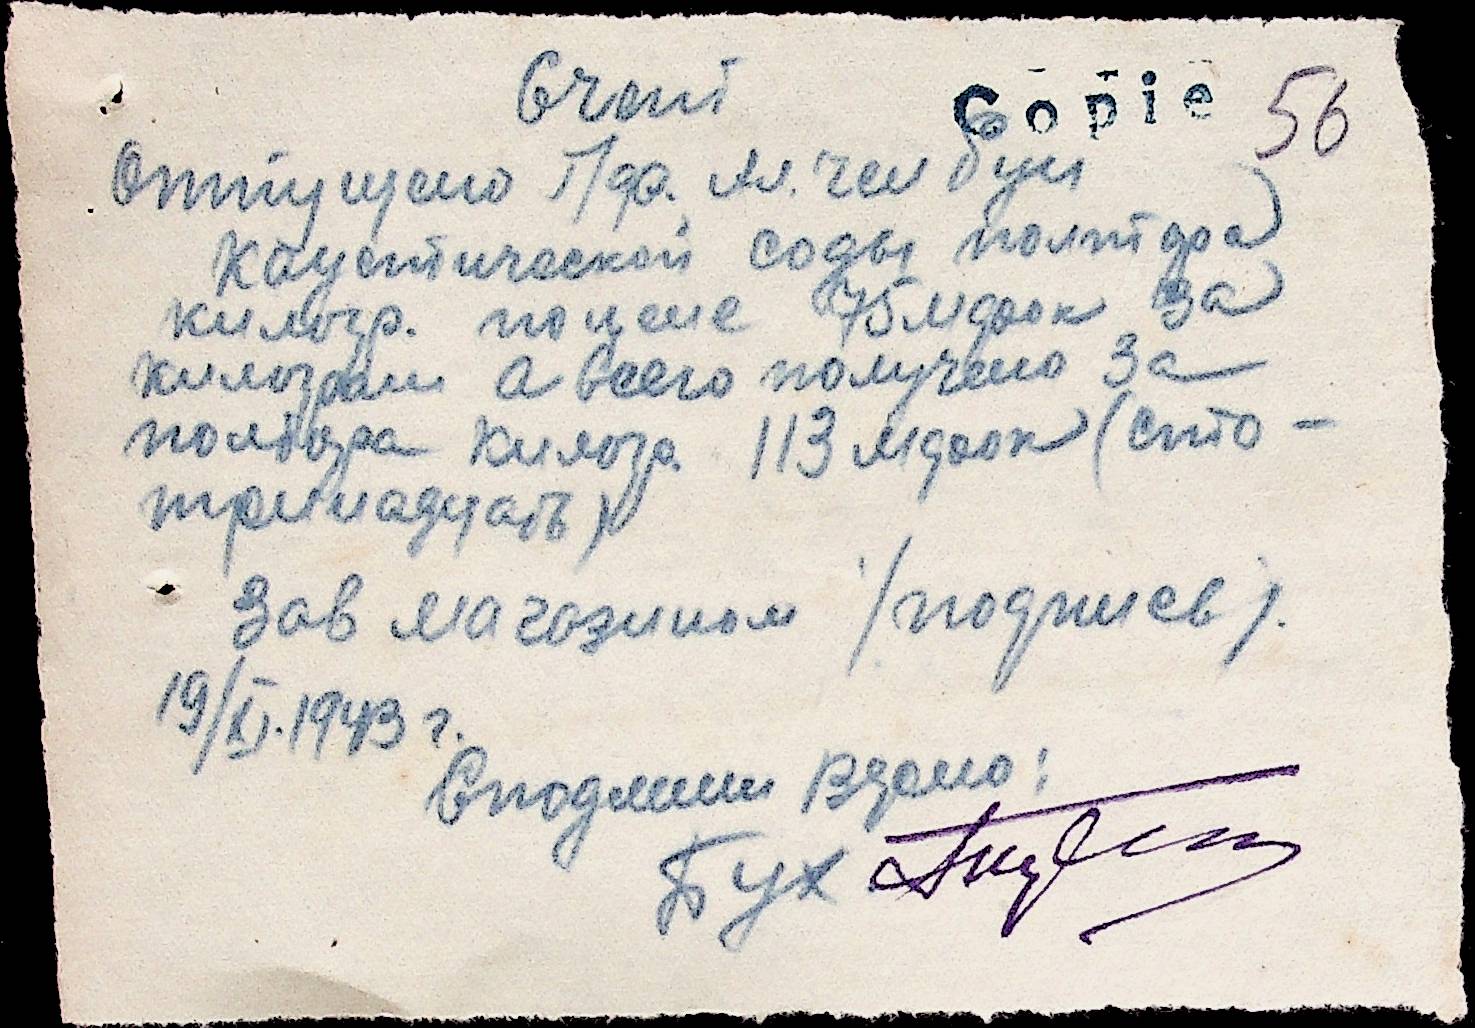 Счет
Copie 56
Отпущено
каустической соды полтора
килогр. по цене 75 марок за
килограм а всего получено за
полтора килогр. 113 марок (сто-
тринадцать)
Зав магазином /подпись/.
19/XI.1943 г.
С подлинным верно:
Бух